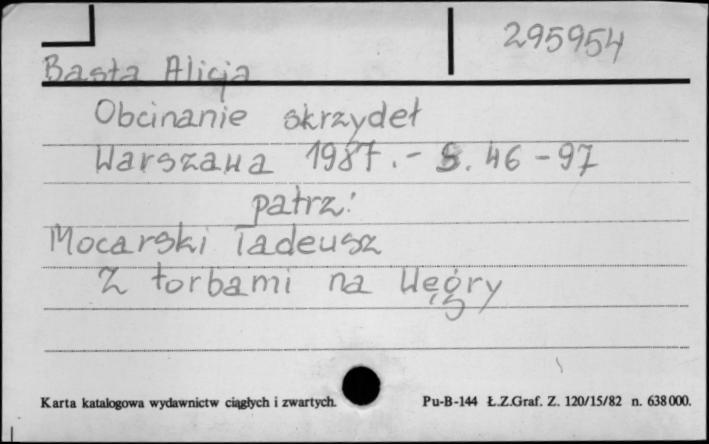 295954
Basta Alicja
Obcinanie skrzydeł
Warszawa 1987.- S. 46-97
patrz:
Mocarski Tadeusz
Z torbami na Węgry
Karta katalogowa wydawnictw ciągłych i zwartych.
Pu-B-144 Ł.Z.Graf. Z. 120/15/82 n. 638000.